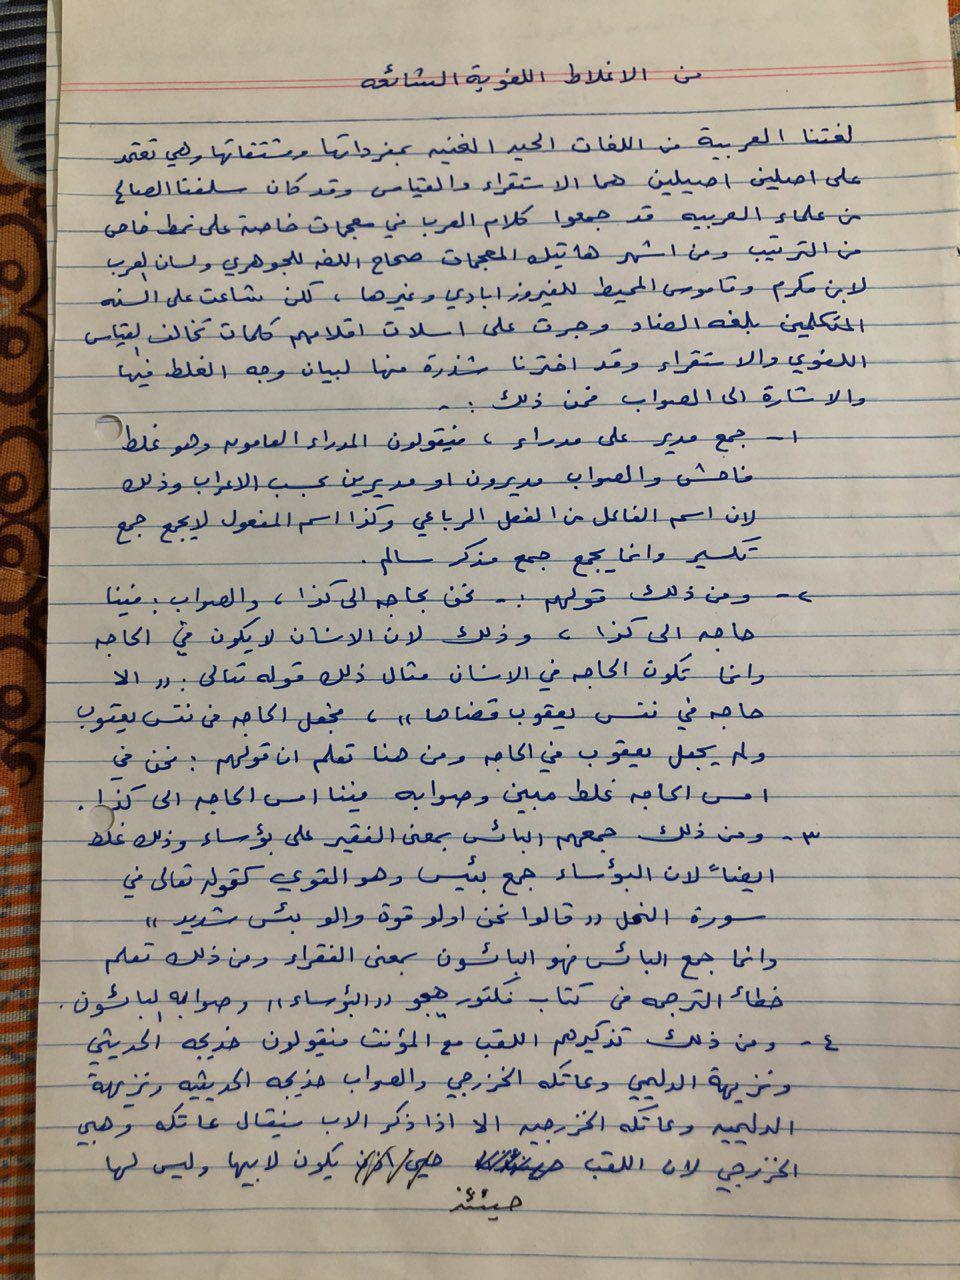 من الاغلاط اللغوية الشائعه
لغتنا العربية من اللغات الحيه الغنيه بمفرداتها ومشتقاتها وهي تعتمد
على اصلين اصيلين هما الاستقراء والقياس وقد كان سلفنا الصالح
من علماء العربيه قد جمعوا كلام العرب في معجمات خاصة على نمط خاص
من الترتيب ومن اشهر هاتيك المعجمات صحاح اللغه للجوهري ولسان العرب
لابن مكرم وقاموس المحيط للفيروزابادي وغيرها ، لكن شاعت على السنه
المتكلمين بلغه الضاد وجرت على اسلات اقلامهم كلمات تخالف القياس
اللغوي والاستقراء وقد اخترنا شذرة منها لبيان وجه الغلط فيها
والاشارة الى الصواب فمن ذلك :-
١- جمع مدير على مدراء ، فيقولون المدراء العامون وهو غلط
فاحش والصواب مديرون او مديرين بحسب الاعراب وذلك
لان اسم الفاعل من الفعل الرباعي وكذا اسم المفعول لايجمع جمع
تكسير وانما يجمع جمع مذكر سالم .
٢- ومن ذلك قولهم :- نحن بحاجه الى كذا ، والصواب : فينا
حاجه الى كذا ، وذلك لان الانسان لايكون في الحاجه
وانما تكون الحاجه في الانسان مثال ذلك قوله تعالى : (( الا
حاجه في نفس يعقوب قضاها )) ، فجعل الحاجه في نفس يعقوب
ولم يجعل يعقوب في الحاجه ومن هنا تعلم ان قولهم : نحن في
امس الحاجه غلط مبين وصوابه فينا امس الحاجه الى كذا .
٣- ومن ذلك جمعهم البائس بمعنى الفقير على بؤساء وذلك غلط
ايضاً لان البؤساء جمع بئيس وهو القوي كقوله تعالى في
سورة النمل (( قالوا نحن اولو قوة والو بئس شديد ))
وانما جمع البائس فهو البائسون بمعنى الفقراء ومن ذلك تعلم
خطأ الترجمه في كتاب فكتور هيجو (( البؤساء )) وصوابه البائسون .
٤- ومن ذلك تذكيرهم اللقب مع المؤنث فيقولون خديجه الحديثي
ونزيهة الدليمي وعاتكه الخزرجي والصواب خديجه الحديثيه ونزيهة
الدليميه وعاتكه الخزرجيه الا اذا ذكر الاب فيقال عاتكه وهبي
الخزرجي لان اللقب يكون لابيها وليس لها
حينئذ